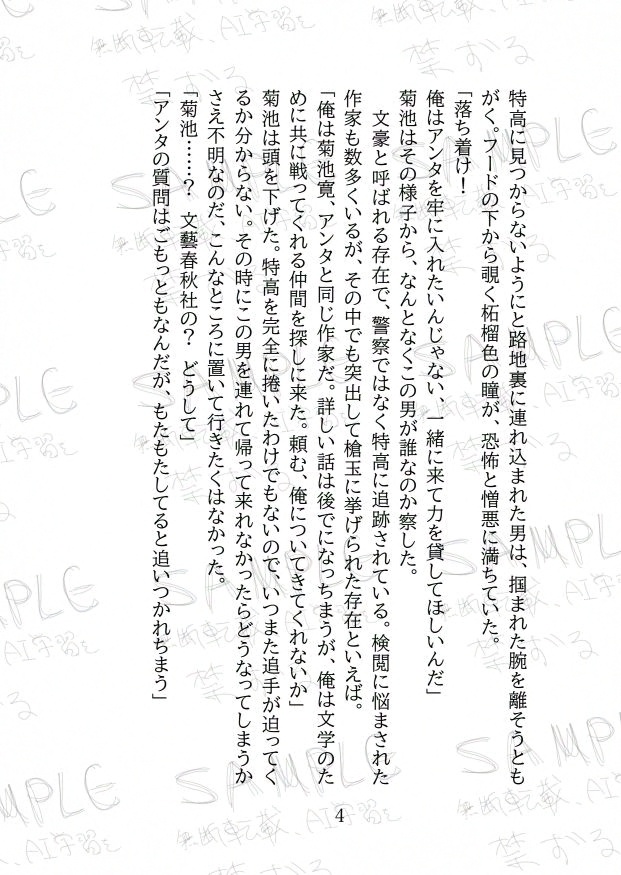 特高に見つからないようにと路地裏に連れ込まれた男は、掴まれた腕を離そうとも
がく。フードの下から覗く柘榴色の瞳が、恐怖と憎悪に満ちていた。
「落ち着け！
俺はアンタを牢に入れたいんじゃない、一緒に来て力を貸してほしいんだ」
菊池はその様子から、なんとなくこの男が誰なのか察した。
文豪と呼ばれる存在で、警察ではなく特高に追跡されている。検閲に悩まされた
作家も数多くいるが、その中でも突出して槍玉に挙げられた存在といえば。
「俺は菊池寛、アンタと同じ作家だ。詳しい話は後でになっちまうが、俺は文学のた
めに共に戦ってくれる仲間を探しに来た。頼む、俺についてきてくれないか」
菊池は頭を下げた。特高を完全に捲いたわけでもないので、いつまた追手が迫ってく
るか分からない。その時にこの男を連れて帰って来れなかったらどうなってしまうか
さえ不明なのだ、こんなところに置いて行きたくはなかった。
「菊池……？　文藝春秋社の？　どうして」
「アンタの質問はごもっともなんだが、もたもたしてると追いつかれちまう」
4
SAMPLE
無断転載、AI学習を
禁ずる